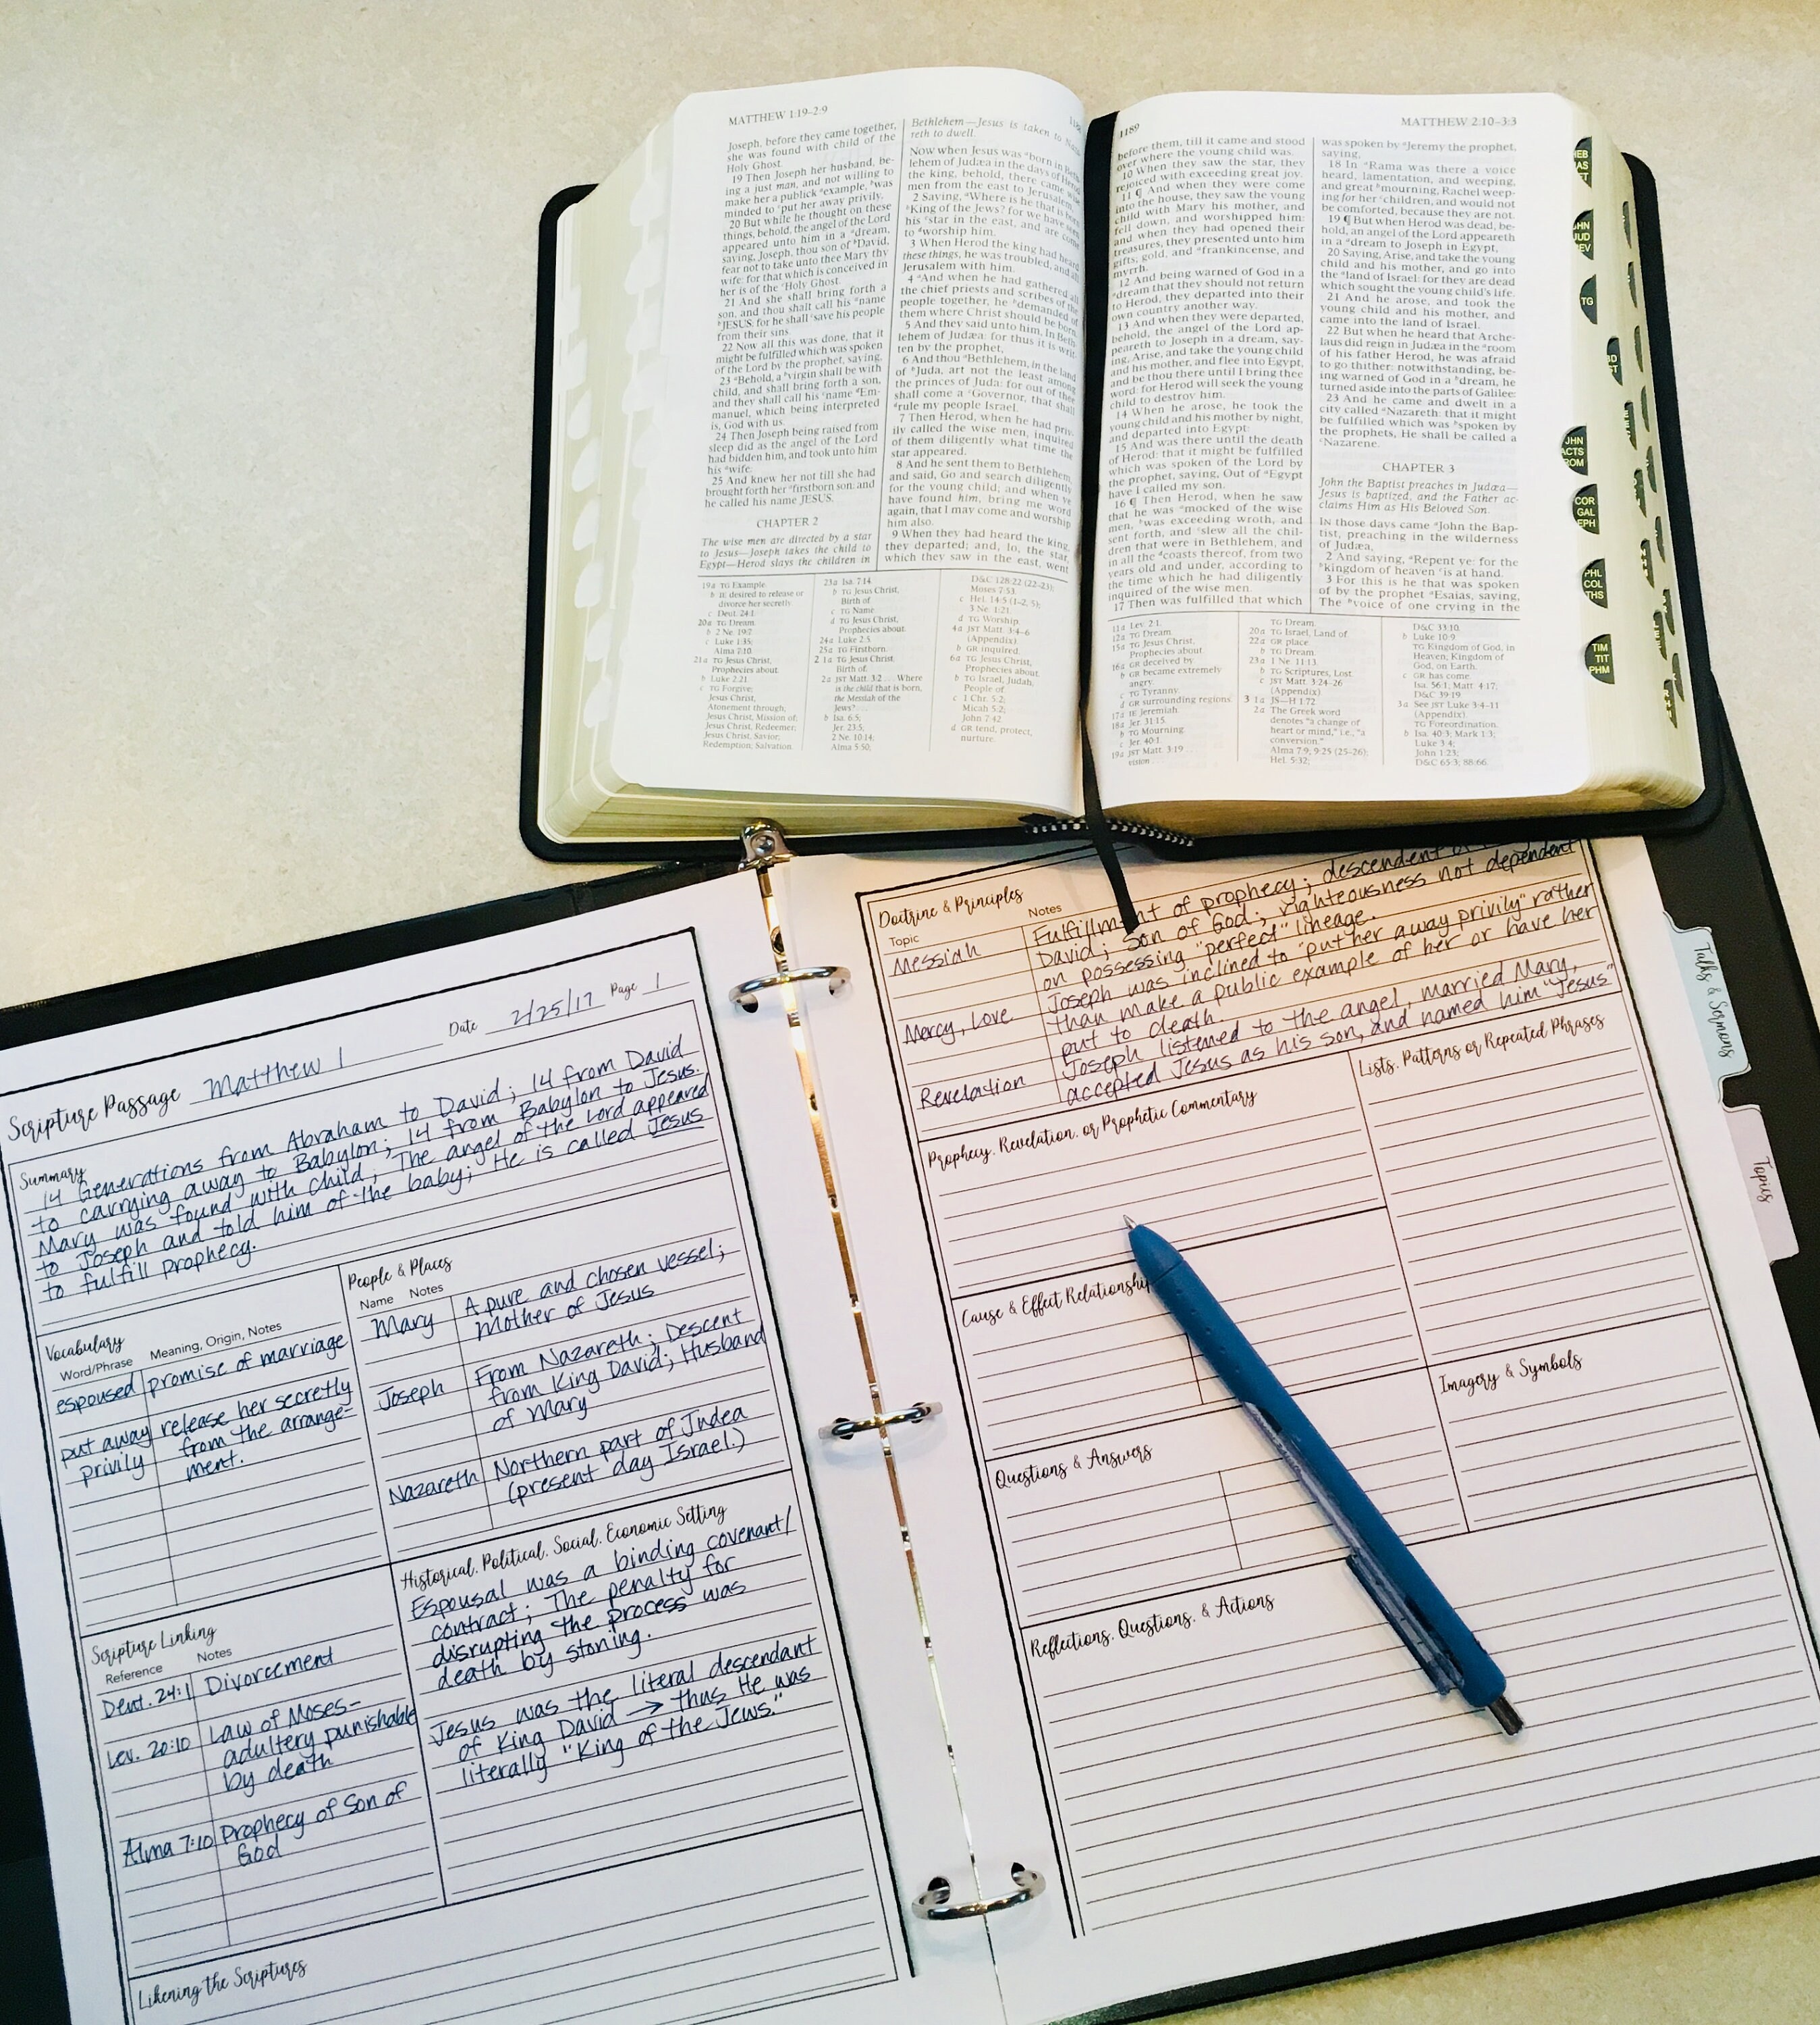 MATTHEW 1:19–2:9
Joseph, before they came together,
she was found with child of the
Holy Ghost.
19 Then Joseph her husband, be-
ing a just man, and not willing to
make her a publick ᵃexample, ᵇwas
minded to ᶜput her away privily.
20 But while he thought on these
things, behold, the angel of the Lord
appeared unto him in a ᵃdream,
saying, Joseph, thou son of ᵇDavid,
fear not to take unto thee Mary thy
wife: for that which is conceived in
her is of the ᶜHoly Ghost.
21 And she shall bring forth a
son, and thou shalt call his ᵃname
ᵇJESUS: for he shall ᶜsave his people
from their sins.
22 Now all this was done, that it
might be fulfilled which was spoken
of the Lord by the prophet, saying,
23 ᵃBehold, a ᵇvirgin shall be with
child, and shall bring forth a son,
and they shall call his ᶜname ᵈEm-
manuel, which being interpreted
is, God with us.
24 Then Joseph being raised from
sleep did as the angel of the Lord
had bidden him, and took unto him
his ᵃwife:
25 And knew her not till she had
brought forth her ᵃfirstborn son: and
he called his name JESUS.
CHAPTER 2
The wise men are directed by a star
to Jesus—Joseph takes the child to
Egypt—Herod slays the children in
Bethlehem—Jesus is taken to
reth to dwell.
Now when Jesus was ᵃborn in Beth-
lehem of Judæa in the days of Herod
the king, behold, there came wise
men from the east to Jerusalem,
2 Saying, ᵃWhere is he that is born
ᵇKing of the Jews? for we have seen
his ᶜstar in the east, and are come
to ᵈworship him.
3 When Herod the king had heard
these things, he was troubled, and all
Jerusalem with him.
4 ᵃAnd when he had gathered all
the chief priests and scribes of the
people together, he ᵇdemanded of
them where Christ should be born.
5 And they said unto him, In Beth-
lehem of Judæa: for thus it is writ-
ten by the prophet,
6 And thou ᵃBethlehem, in the land
of ᵇJuda, art not the least among
the princes of Juda: for out of thee
shall come a ᶜGovernor, that shall
ᵈrule my people Israel.
7 Then Herod, when he had priv-
ily called the wise men, inquired
of them diligently what time the
star appeared.
8 And he sent them to Bethlehem,
and said, Go and search diligently
for the young child; and when ye
have found him, bring me word
again, that I may come and worship
him also.
9 When they had heard the king,
they departed; and, lo, the star,
which they saw in the east, went
19a TG Example.
b IE desired to release or
divorce her secretly.
c Deut. 24:1.
20a TG Dream.
b 2 Ne. 19:7.
c Luke 1:35;
Alma 7:10.
21a TG Jesus Christ,
Prophecies about.
b Luke 2:21.
c TG Forgive;
Jesus Christ,
Atonement through;
Jesus Christ, Mission of;
Jesus Christ, Savior;
Redemption; Salvation.
23a Isa. 7:14.
b TG Jesus Christ,
Birth of.
c TG Name.
d TG Jesus Christ,
Prophecies about.
24a Luke 2:5.
25a TG Firstborn.
2 1a TG Jesus Christ,
Birth of.
2a JST Matt. 3:2 . . . Where
is the child that is born,
the Messiah of the
Jews? . . .
b Isa. 6:5;
Jer. 23:5;
2 Ne. 10:14;
Alma 5:50;
D&C 128:22 (22–23);
Moses 7:53.
c Hel. 14:5 (1–2, 5);
3 Ne. 1:21.
d TG Worship.
4a JST Matt. 3:4–6
(Appendix).
b GR inquired.
6a TG Jesus Christ,
Prophecies about.
b TG Israel, Judah,
People of.
c 1 Chr. 5:2;
Micah 5:2;
John 7:42.
d GR tend, protect,
nurture.
1189
MATTHEW 2:10–3:3
before them, till it came and stood
over where the young child was.
10 When they saw the star, they
rejoiced with exceeding great joy.
11 ¶ And when they were come
into the house, they saw the young
child with Mary his mother, and
fell down, and worshipped him:
and when they had opened their
treasures, they presented unto him
gifts; gold, and ᵃfrankincense, and
myrrh.
12 And being warned of God in a
ᵃdream that they should not return
to Herod, they departed into their
own country another way.
13 And when they were departed,
behold, the angel of the Lord ap-
peareth to Joseph in a dream, say-
ing, Arise, and take the young child
and his mother, and flee into Egypt,
and be thou there until I bring thee
word: for Herod will seek the young
child to destroy him.
14 When he arose, he took the
young child and his mother by night,
and departed into Egypt:
15 And was there until the death
of Herod: that it might be fulfilled
which was spoken of the Lord by
the prophet, saying, Out of ᵃEgypt
have I called my son.
16 ¶ Then Herod, when he saw
that he was ᵃmocked of the wise
men, ᵇwas exceeding wroth, and
sent forth, and ᶜslew all the chil-
dren that were in Bethlehem, and
in all the ᵈcoasts thereof, from two
years old and under, according to
the time which he had diligently
inquired of the wise men.
17 Then was fulfilled that which
was spoken by ᵃJeremy the prophet,
saying,
18 In ᵃRama was there a voice
heard, lamentation, and weeping,
and great ᵇmourning, Rachel weep-
ing for her ᶜchildren, and would not
be comforted, because they are not.
19 ¶ But when Herod was dead, be-
hold, an angel of the Lord appeareth
in a ᵃdream to Joseph in Egypt,
20 Saying, Arise, and take the young
child and his mother, and go into
the ᵃland of Israel: for they are dead
which sought the young child's life.
21 And he arose, and took the
young child and his mother, and
came into the land of Israel.
22 But when he heard that Arche-
laus did reign in Judæa in the ᵃroom
of his father Herod, he was afraid
to go thither: notwithstanding, be-
ing warned of God in a ᵇdream, he
turned aside into the parts of Galilee:
23 And he came and dwelt in a
city called ᵃNazareth: that it might
be fulfilled which was ᵇspoken by
the prophets, He shall be called a
ᶜNazarene.
CHAPTER 3
John the Baptist preaches in Judæa—
Jesus is baptized, and the Father ac-
claims Him as His Beloved Son.
In those days came ᵃJohn the Bap-
tist, preaching in the wilderness
of Judæa,
2 And saying, ᵃRepent ye: for the
ᵇkingdom of heaven ᶜis at hand.
3 For this is he that was spoken
of by the prophet ᵃEsaias, saying,
The ᵇvoice of one crying in the
11a Lev. 2:1.
12a TG Dream.
15a TG Jesus Christ,
Prophecies about.
16a GR deceived by
b GR became extremely
angry.
c TG Tyranny.
d GR surrounding regions.
17a IE Jeremiah.
18a Jer. 31:15.
b TG Mourning.
c Jer. 40:1.
19a JST Matt. 3:19 . . .
vision . . .
TG Dream.
20a TG Israel, Land of.
22a GR place.
b TG Dream.
23a 1 Ne. 11:13.
b TG Scriptures, Lost.
c JST Matt. 3:24–26
(Appendix).
3 1a JS—H 1:72.
2a The Greek word
denotes "a change of
heart or mind," i.e., "a
conversion."
Alma 7:9; 9:25 (25–26);
Hel. 5:32;
D&C 33:10.
b Luke 10:9.
TG Kingdom of God, in
Heaven; Kingdom of
God, on Earth.
c GR has come.
Isa. 56:1; Matt. 4:17;
D&C 39:19.
3a See JST Luke 3:4–11
(Appendix).
TG Foreordination.
b Isa. 40:3; Mark 1:3;
Luke 3:4;
John 1:23;
D&C 65:3; 88:66.
TG
JHN
ACTS
ROM
COR
GAL
EPH
PHL
COL
THS
TIM
TIT
PHM
Scripture Passage Matthew 1 Date 2/25/17 Page 1
Summary
14 Generations from Abraham to David; 14 from David
to carrying away to Babylon; 14 from Babylon to Jesus.
Mary was found with child; The angel of the Lord appeared
to Joseph and told him of the baby; He is called Jesus
to fulfill prophecy.
Vocabulary
Word/Phrase Meaning, Origin, Notes
espoused promise of marriage
put away release her secretly
privily from the arrange-
ment.
People & Places
Name Notes
Mary A pure and chosen vessel;
Mother of Jesus
Joseph From Nazareth; Descent
from King David; Husband
of Mary
Nazareth Northern part of Judea
(present day Israel.)
Scripture Linking
Reference Notes
Deut. 24:1 Divorcement
Lev. 20:10 Law of Moses-
adultery punishable
by death
Alma 7:10 Prophecy of Son of
God
Historical, Political, Social, Economic Setting
Espousal was a binding covenant/
contract; The penalty for
disrupting the process was
death by stoning.
Jesus was the literal descendant
of King David → thus He was
literally "King of the Jews."
Likening the Scriptures
Doctrine & Principles
Topic Notes
Messiah Fulfillment of prophecy; descendent
David; Son of God; righteousness not dependent
on possessing "perfect" lineage.
Mercy, Love Joseph was inclined to "put her away privily" rather
than make a public example of her or have her
put to death.
Revelation Joseph listened to the angel, married Mary,
accepted Jesus as his son, and named him "Jesus"
Prophecy, Revelation, or Prophetic Commentary
Lists, Patterns or Repeated Phrases
Cause & Effect Relationship
Imagery & Symbols
Questions & Answers
Reflections, Questions, & Actions
Talks & Sermons
Topics